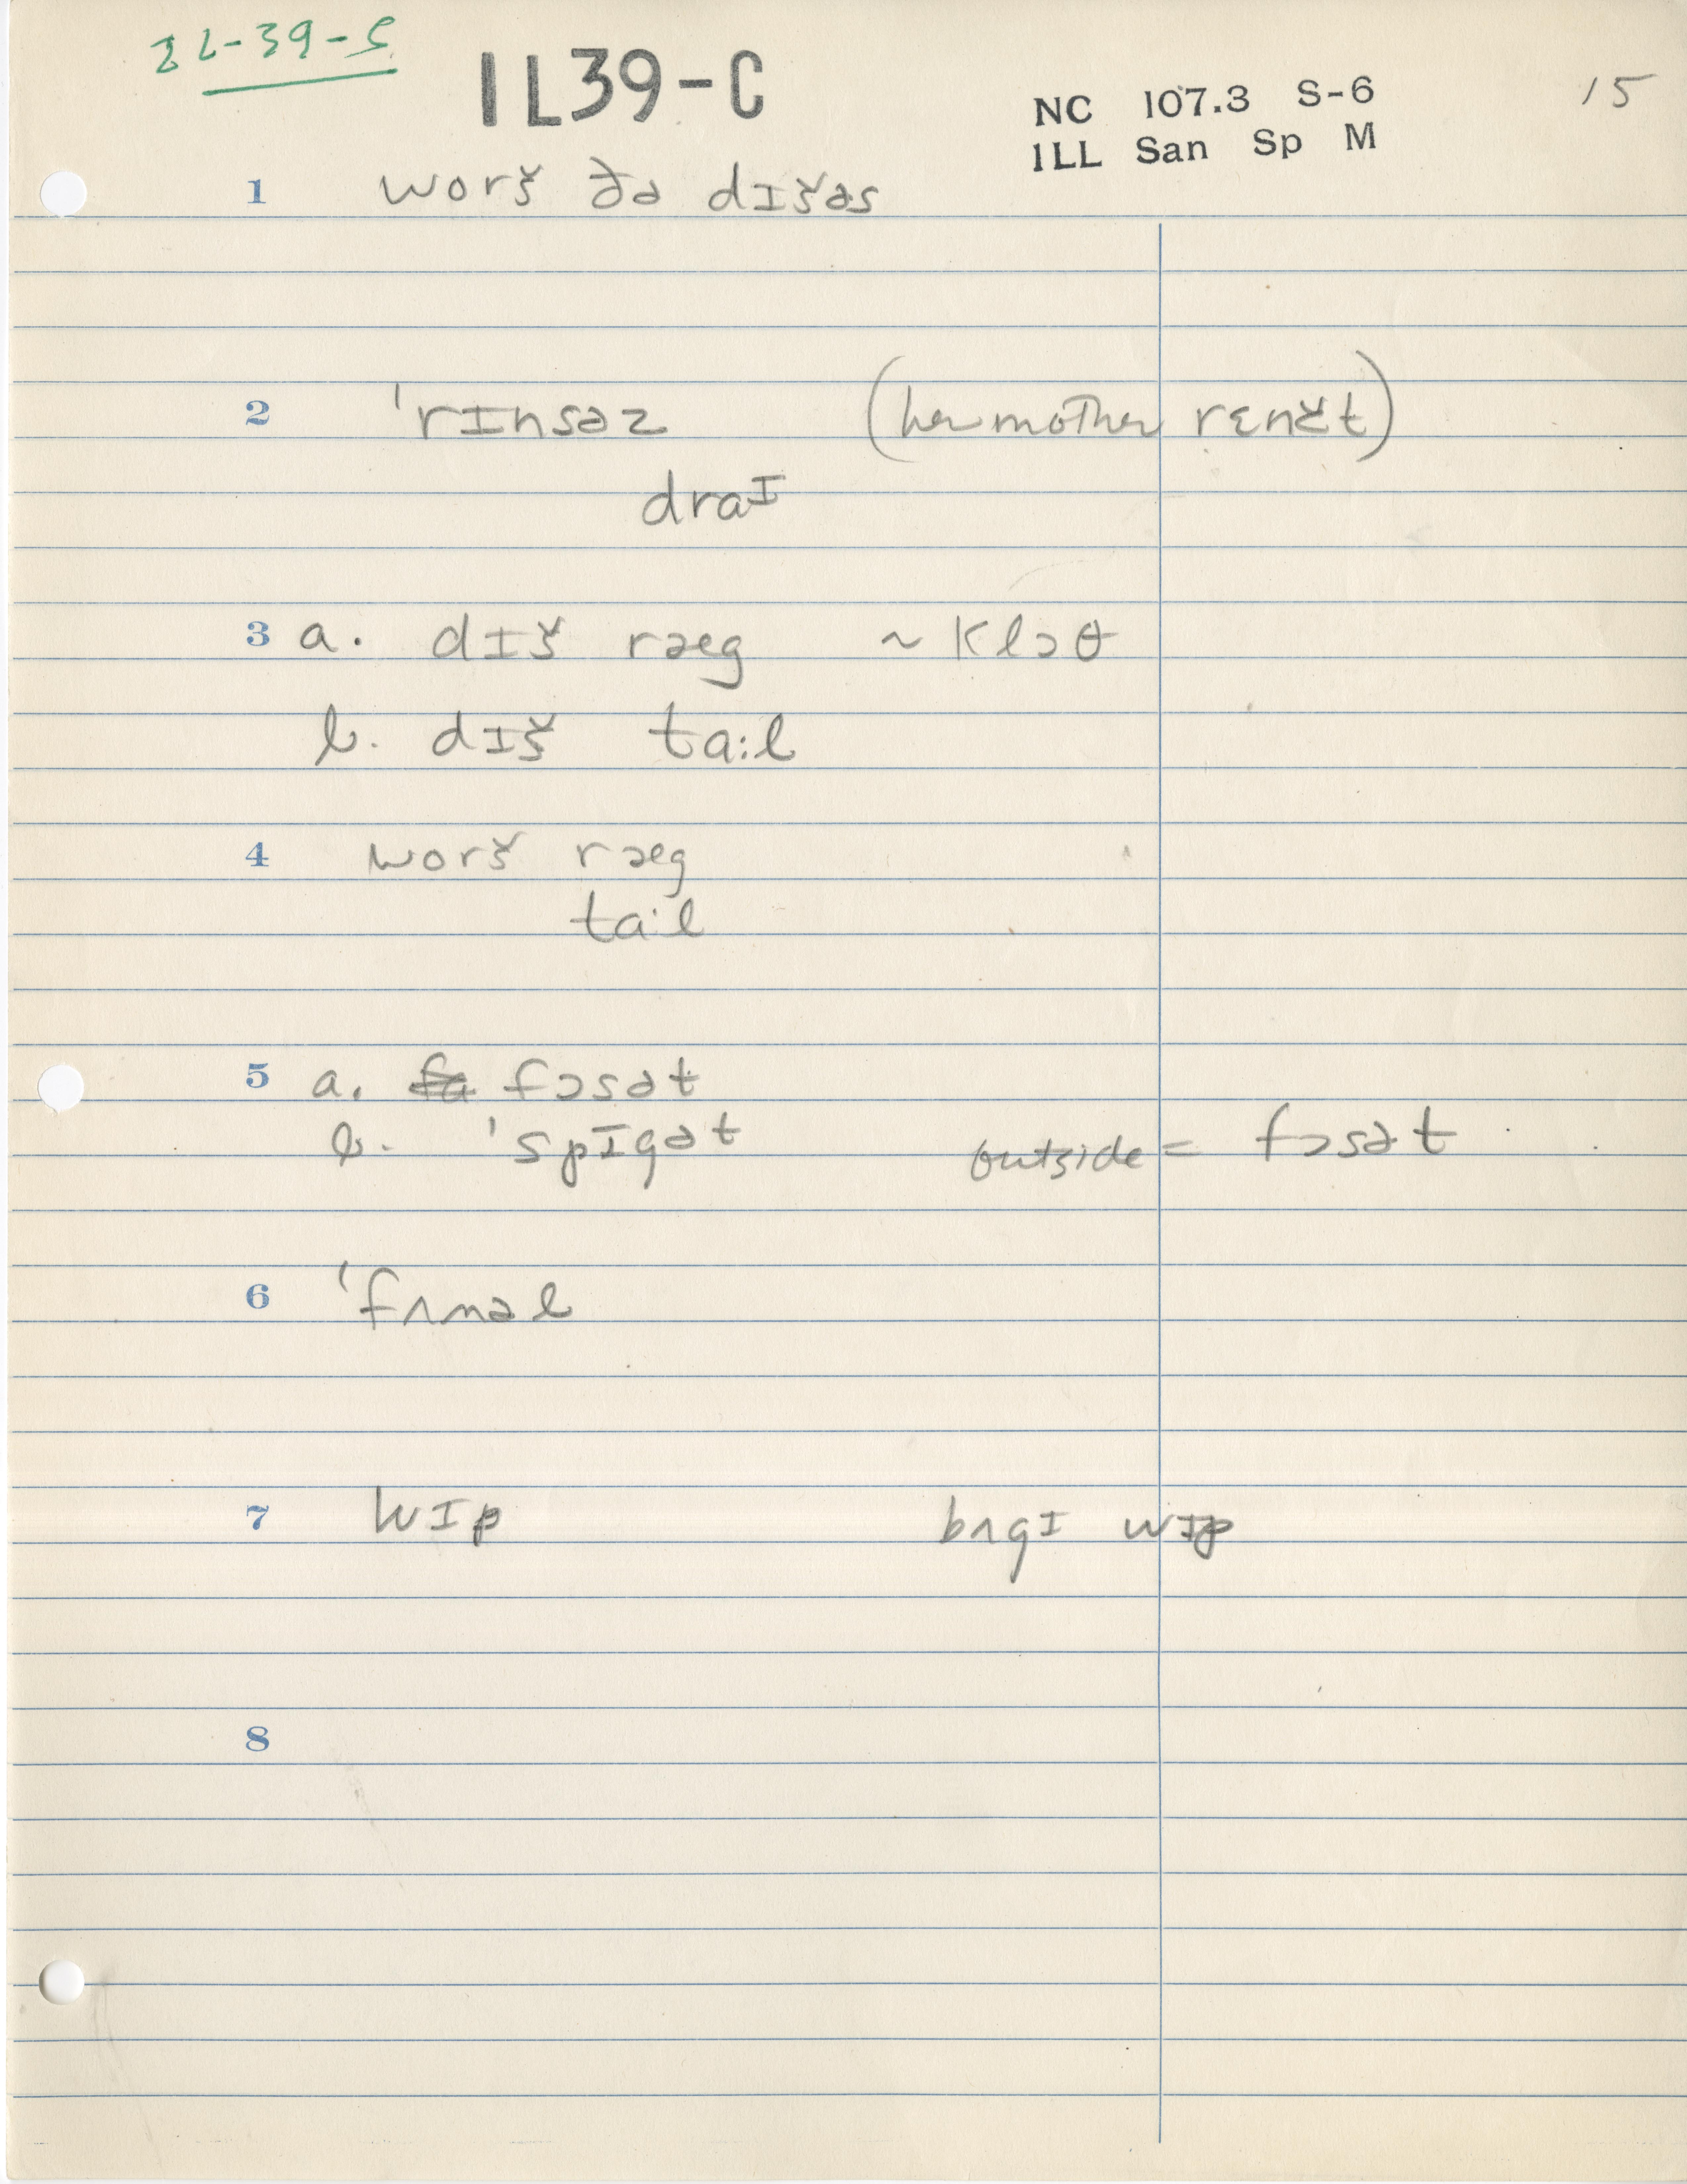 IL-39-S
1L39-C
NC 107.3 S-6
1LL San Sp M
15
1 worš ðə dɪšəs
2 'rɪnsəz (her mother rɛnčt)
draɪ
3 a. dɪš ræg ~ klɔθ
b. dɪš ta:l
4 worš ræg
ta:l
5 a. fa fɔsət
b. 'spɪgət outside = fɔsət
6 'fʌnəl
7 wɪp bʌgɪ wɪp
8